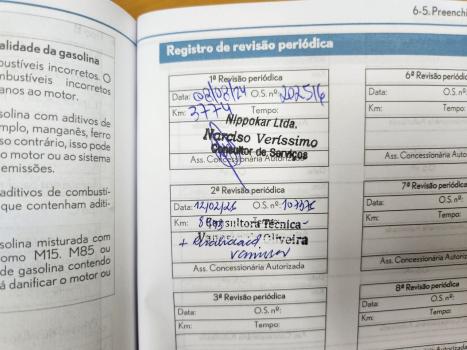 alidade da gasolina
bustíveis incorretos. O
mbustíveis incorretos
anos ao motor.
solina com aditivos de
mplo, manganês, ferro
so contrário, isso pode
o motor ou ao sistema
emissões.
aditivos de combustí-
que contenham aditi-
solina misturada com
omo M15. M85 ou
de gasolina contendo
á danificar o motor ou
6-5. Preenchi
Registro de revisão periódica
1ª Revisão periódica
Data: 02/02/24 O.S. nº: 202516
Km: 3774 Tempo:
Nippokar Ltda.
Narciso Veríssimo
Consultor de Serviços
Ass. Concessionária Autorizada
2ª Revisão periódica
Data: 12/02/26 O.S. nº: 107376
Km: Tempo:
Consultora Técnica
Oliveira
Ass. Concessionária Autorizada
3ª Revisão periódica
Data: O.S. nº:
Km: Tempo:
6ª Revisão
Data: O.S. nº
Km:
Ass. Concessionár
7ª Revisão
Data: O.S. nº
Km:
Ass. Concessionár
8ª Revisão
Data: O.S. nº
Km: